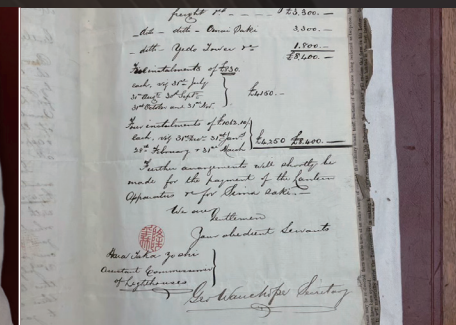 freight &c - $3,300.—
- ditto - ditto - Omai Saki 3,300.—
- ditto - Yedo Tower &c 1,800.—
$8,400.—
Five instalments of £830.
each, viz 31st July
31st Augt 30th Septr
31st October and 31st Dec.
£4150.—
Four instalments of £1062.10/
each, viz 31st Decr 31st Jany
28th February & 31st March £4250 £8400.—
Further arrangements will shortly be
made for the payment of the Lantern
Apparatus &c for Sima Saki.—
We are
Gentlemen
Your obedient Servants
Hara Taka Yoshi
Assistant Commissioner
of Lighthouses
Geo Wauchope Secretary